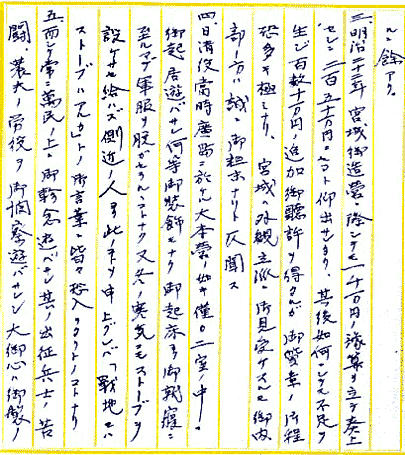 ルニ餘アリ。
三、明治二十三年宮城御造營ノ際シテモ一千万円ノ豫算ヲ立テ奏上
セシニ二百五十万円ニセヨト仰出サレタリ 其後如何ニシテモ不足ヲ
生ジ百数十万円ノ追加御聽許ヲ得タルガ 御質素ノ御程
恐多キ極ミナリ、宮城ハ外観立派ニ御見受ケスルモ御内
部ノ方ハ誠ニ御粗末ナリト仄聞ス
四、日清役當時廣島ニ於ケル大本營ノ如キ僅カ二室ノ中ニ
御起居遊バサレ何等御装飾モナク御起床ヨリ御就寝ニ
至ルマデ軍服ヲ脱ガセラルヽコトナク又冬ノ寒気ニモストーブヲ
設ケサセ給ハズ側近ノ人ヨリ此ノ事ヲ申上グレバ「戰地ニハ
ストーブハアルカ」トノ御言葉ニ皆々恐入リタリトノコトナリ
五、而シテ常ニ萬民ノ上ニ御軫念遊バサレ其ノ出征兵士ノ苦
闘、農夫ノ労役ヲ御推察遊バサレシ大御心ハ御製ノ